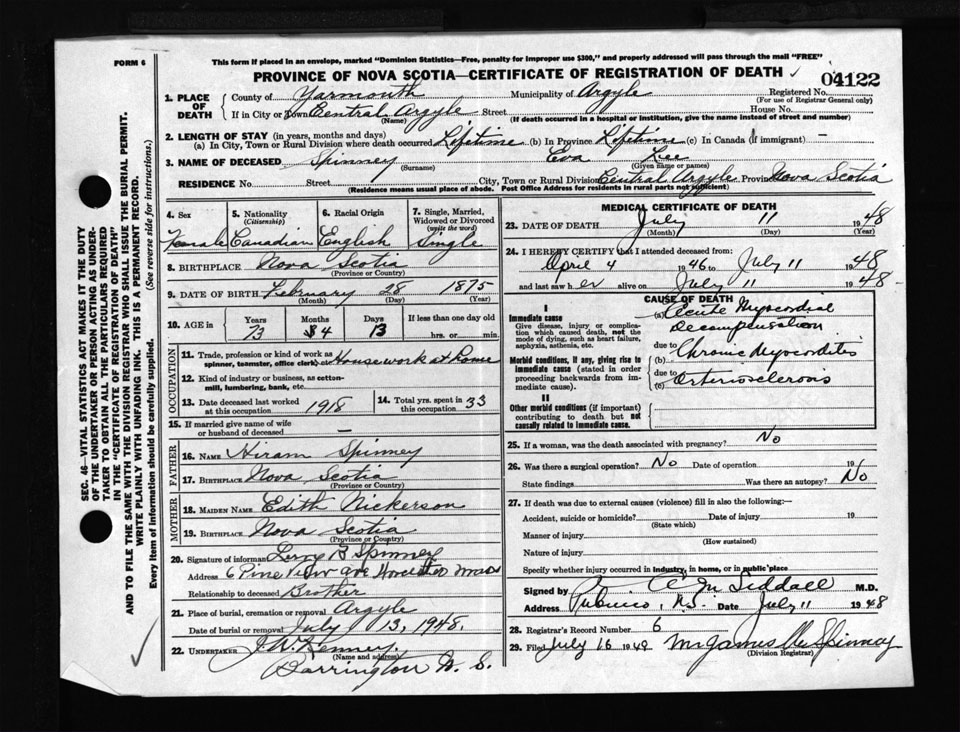 FORM 6
This form if placed in an envelope, marked "Dominion Statistics—Free, penalty for improper use $300," and properly addressed will pass through the mail "FREE"
PROVINCE OF NOVA SCOTIA—CERTIFICATE OF REGISTRATION OF DEATH ✓
04122
1. PLACE OF DEATH
County of Yarmouth Municipality of Argyle Registered No.
(For use of Registrar General only)
If in City or Town Central Argyle Street House No.
(Name) (If death occurred in a hospital or institution, give the name instead of street and number)
2. LENGTH OF STAY (in years, months and days)
(a) In City, Town or Rural Division where death occurred Lifetime (b) In Province Lifetime (c) In Canada (if immigrant) —
3. NAME OF DECEASED Spinney Eva Lee
(Surname) (Given name or names)
RESIDENCE No. Street City, Town or Rural Division Central Argyle Province Nova Scotia
(Residence means usual place of abode. Post Office Address for residents in rural parts not sufficient)
4. Sex Female
5. Nationality (Citizenship) Canadian
6. Racial Origin English
7. Single, Married, Widowed or Divorced (write the word) Single
8. BIRTHPLACE Nova Scotia
(Province or Country)
9. DATE OF BIRTH February 28 1875
(Month) (Day) (Year)
10. AGE in Years Months Days If less than one day old
73 4 13 hrs. or min.
OCCUPATION
11. Trade, profession or kind of work as spinner, teamster, office clerk, etc. Housework at home
12. Kind of industry or business, as cotton-mill, lumbering, bank, etc.
13. Date deceased last worked at this occupation 1918
14. Total yrs. spent in this occupation 33
15. If married give name of wife or husband of deceased —
FATHER
16. NAME Hiram Spinney
17. BIRTHPLACE Nova Scotia
(Province or Country)
MOTHER
18. MAIDEN NAME Edith Nickerson
19. BIRTHPLACE Nova Scotia
(Province or Country)
20. Signature of informant Leroy B Spinney
Address 6 Pine View ave Mass
Relationship to deceased Brother
21. Place of burial, cremation or removal Argyle
Date of burial or removal July 13, 1948.
22. UNDERTAKER J. W. Kenney.
(Name and address)
Barrington N. S.
MEDICAL CERTIFICATE OF DEATH
23. DATE OF DEATH July 11 1948
(Month) (Day) (Year)
24. I HEREBY CERTIFY that I attended deceased from:
April 4 1946 to July 11 1948
and last saw her alive on July 11 1948
CAUSE OF DEATH
I
Immediate cause
Give disease, injury or complication which caused death, not the mode of dying, such as heart failure, asphyxia, asthenia, etc.
(a) Acute Myocardial Decompensation
due to
Morbid conditions, if any, giving rise to immediate cause (stated in order proceeding backwards from immediate cause).
(b) Chronic Myocarditis
due to
(c) Arteriosclerosis
II
Other morbid conditions (if important) contributing to death but not causally related to immediate cause.
25. If a woman, was the death associated with pregnancy? No
26. Was there a surgical operation? No Date of operation 19
State findings Was there an autopsy? No
27. If death was due to external causes (violence) fill in also the following:—
Accident, suicide or homicide? Date of injury 19
(State which)
Manner of injury
(How sustained)
Nature of injury
Specify whether injury occurred in industry, in home, or in public place
Signed by M. Siddall M.D.
Address Pubnico, N.S. Date July 11 1948
28. Registrar's Record Number 6
29. Filed July 16 1948 Mrs James Spinney
(Division Registrar)
SEC. 46—VITAL STATISTICS ACT MAKES IT THE DUTY
OF THE UNDERTAKER OR PERSON ACTING AS UNDER-
TAKER TO OBTAIN ALL THE PARTICULARS REQUIRED
IN THE "CERTIFICATE OF REGISTRATION OF DEATH"
AND TO FILE THE SAME WITH THE DIVISION REGISTRAR WHO SHALL ISSUE THE BURIAL PERMIT.
WRITE PLAINLY WITH UNFADING INK. THIS IS A PERMANENT RECORD.
Every item of information should be carefully supplied. (See reverse side for instructions.)